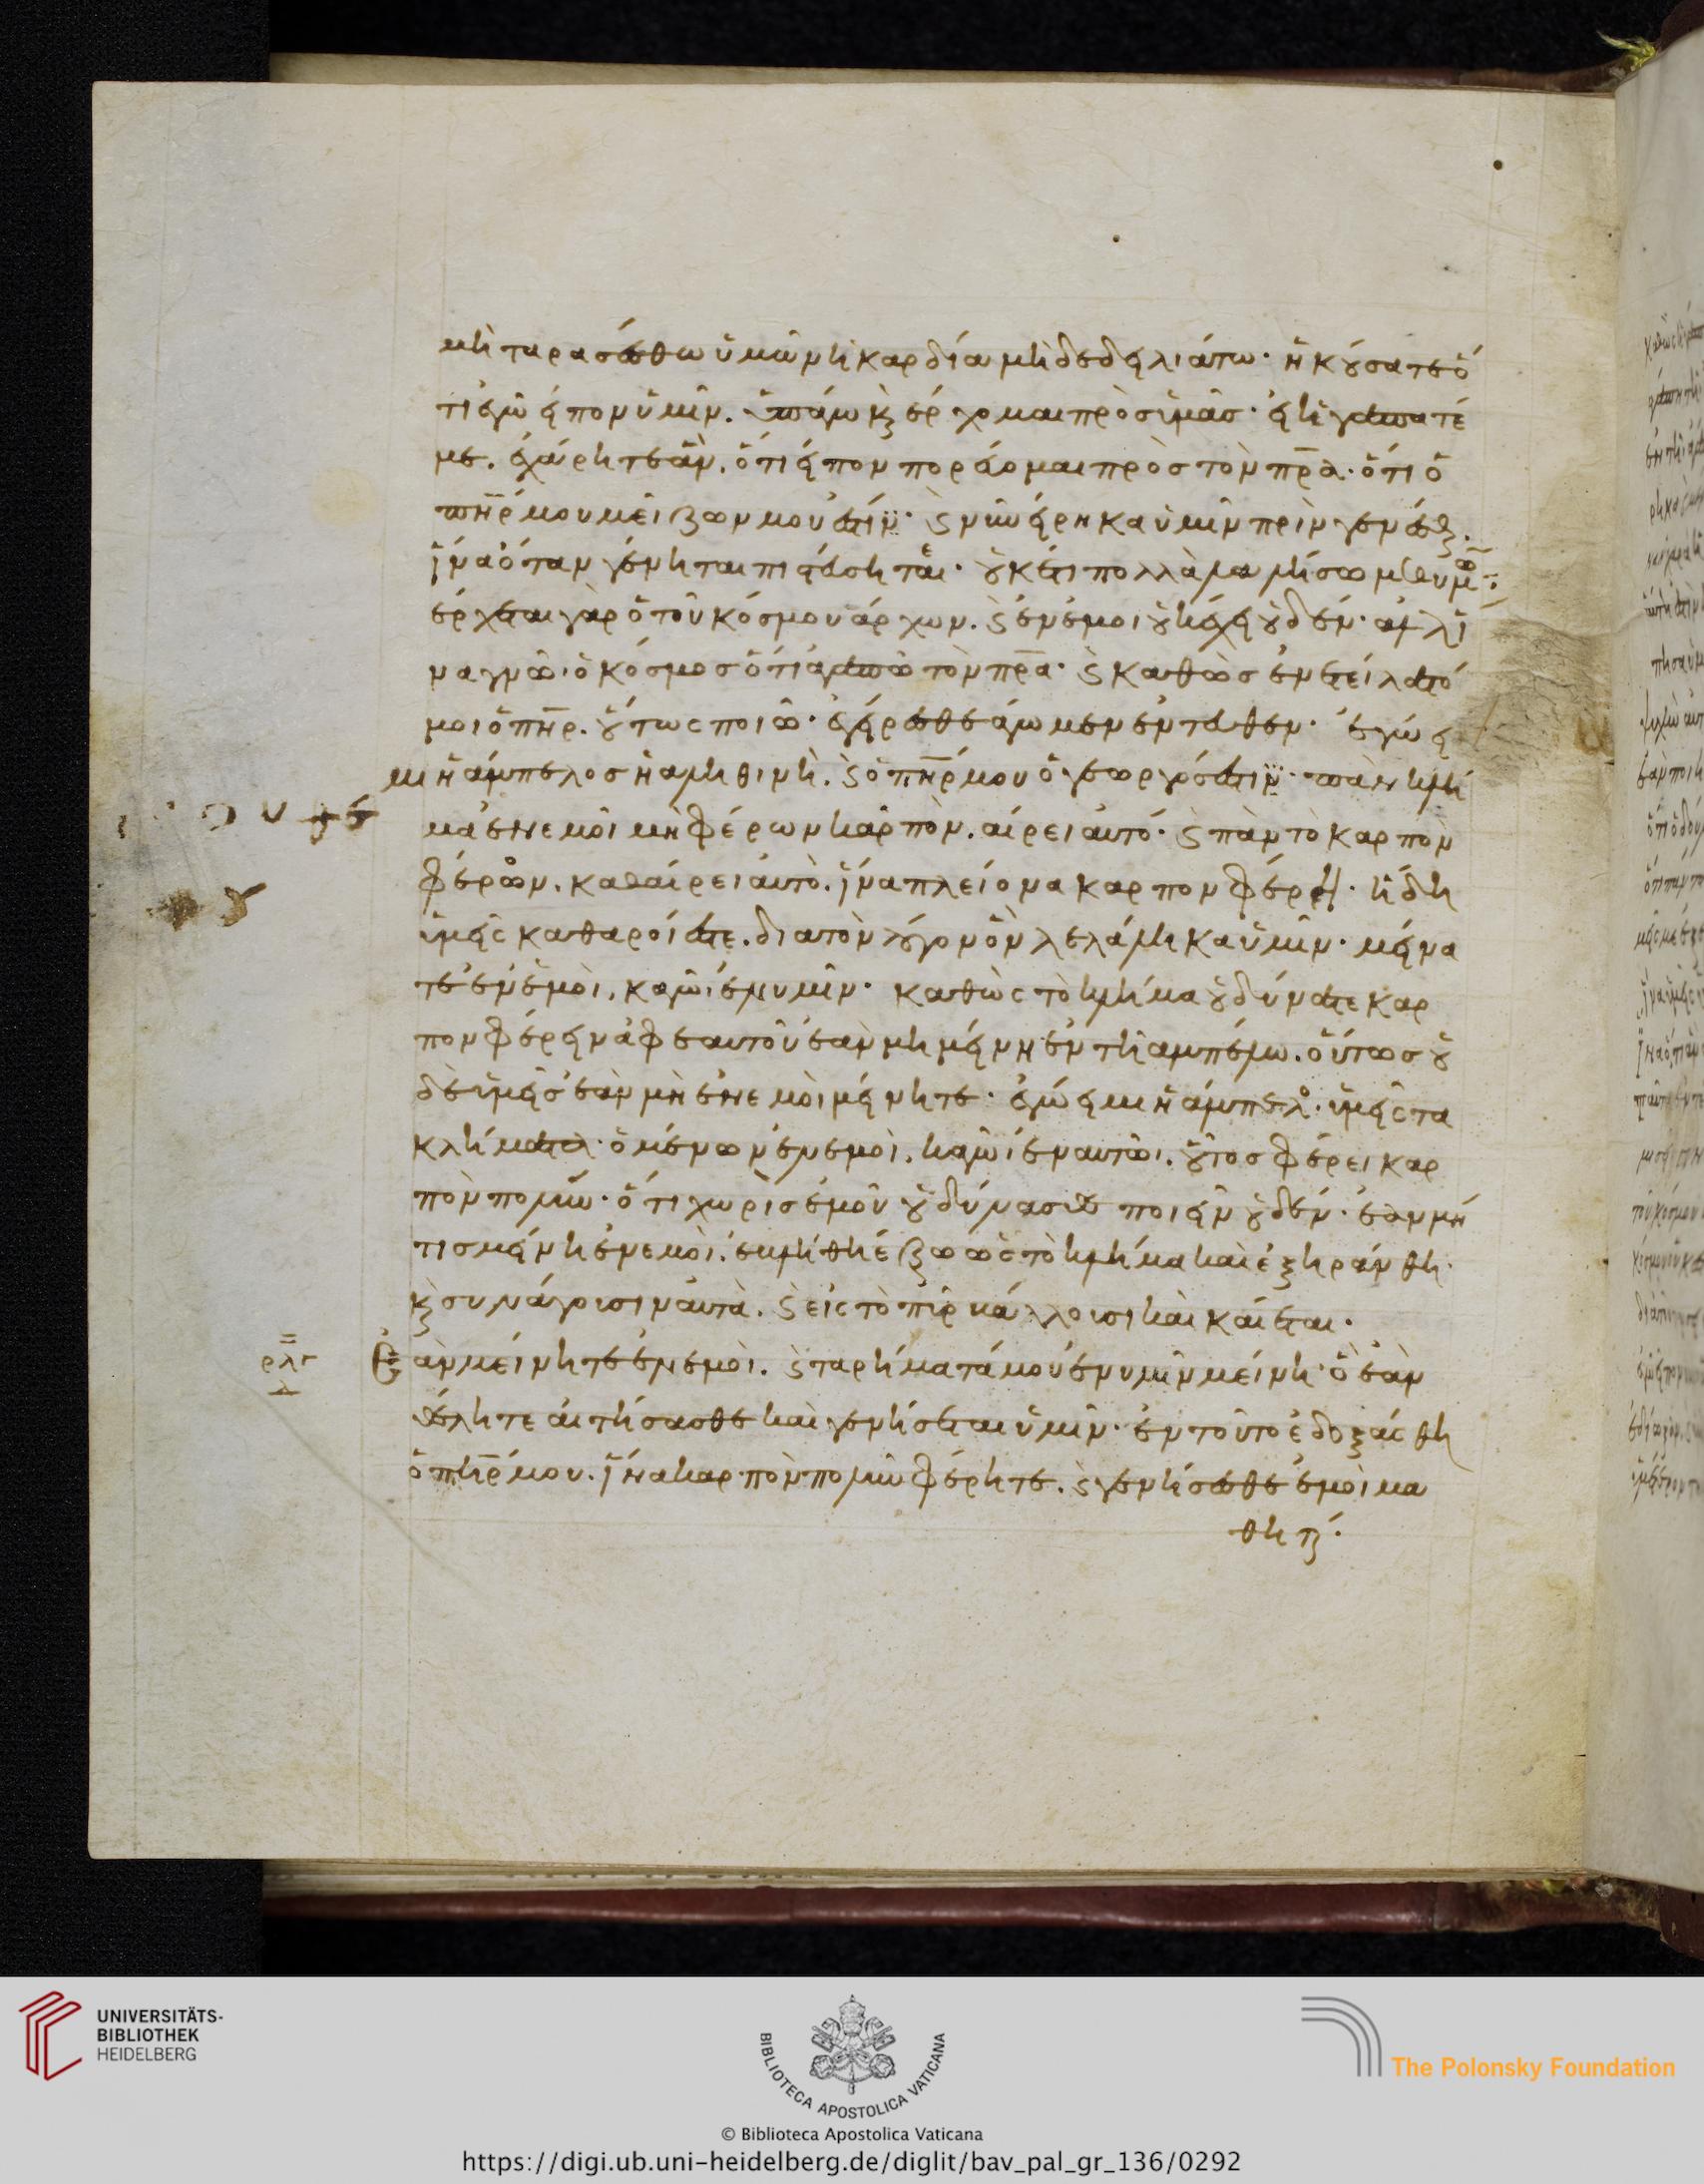 μὴ ταρασέσθω ὑμῶν ἡ καρδία μὴ δὲ δειλιάτω· ἠκούσατε ὅ
τι ἐγὼ εἶπον ὑμῖν. ὑπάγω κ(αὶ) ἔρχομαι πρὸς ὑμᾶς· εἰ ἠγαπατέ
με. ἐχάρητε ἂν. ὅτι εἶπον πορεύομαι πρὸς τὸν πρ̅α· ὅτι ὁ
πηρ̅ μου μείζων μού ἐστίν· κ(αὶ) νῦν εἴρηκα ὑμῖν πρὶν γενέσθαι.
ἵνα ὅταν γένηται πιστεύσητε· οὐκέτι πολλὰ λαλήσω μεθ υμῶ
ἔρχεται γὰρ ὁ τοῦ κόσμου ἄρχων. κ(αὶ) ἐν ἐμοι οὐκ ἔχει οὐδέν· ἀλλ ἵ
να γνῶ ὁ κόσμος ὅτι ἀγαπῶ τὸν πρ̅α· κ(αὶ) καθὼς ἐνετείλατό
μοι ὁ πηρ̅. οὕτως ποιῶ· ἐγείρεσθε ἄγωμεν ἐντεύθεν· ἐγώ εἰ
μι ἡ ἄμπελος ἡ αληθινὴ. κ(αὶ) ὁ πηρ̅ μου ὁ γεωργός ἐστιν· πὰν κλῆ
μα ἐν εμοὶ μὴ φέρων καρπὸν. αίρει αὐτό· κ(αὶ) πὰν τὸ καρπὸν
φέρων. καθαίρει αὐτὸ. ἵνα πλείονα καρπον φέρῃ. ἤδη
ὑμεῖς καθαροί ἐστε. δια τὸν λόγον ὃν λελάληκα ὑμῖν· μείνα
τε ἐν ἐμοὶ, καγὼ ἐν υμῖν· καθὼς τὸ κλῆμα οὐ δύνατε καρ
πον φέρειν ἀφ εαυτοῦ ἐὰν μη μείνη ἐν τῆ αμπέλω. οὕτως οὐ
δὲ ὑμεῖς ἐὰν μὴ ἐν εμοὶ μείνητε· ἐγώ ειμι ἡ ἄμπελο. ὑμεῖς τα
κλήματα· ὁ μένων ἐν εμοὶ. καγὼ ἐν αυτῶ. οὗτος φέρει καρ
πὸν πολὺν· ὅτι χωρὶς ἐμοῦ οὐ δύνασθε ποιεῖν οὐδέν· ἐὰν μή
τις μείνη ἐν εμοὶ. ἐκλήθη ἔξω ὡς τὸ κλήμα καὶ ἐξηράνθη·
κ(αὶ) συνάγουσιν αυτὰ. κ(αὶ) εἰς τὸ πῦρ βάλλουσι καὶ καίεται·
Ἐὰν μείνητε ἐν εμοὶ. κ(αὶ) τα ρήματά μου ἐν υμῖν μείνη· ὃ ἐὰν
θέλητε αιτήσασθε καὶ γενήσεται ὑμῖν· ἐν τούτο ἐδοξάσθη
ὁ πηρ̅ μου. ἵνα καρπὸν πολὺν φέρητε. κ(αὶ) γενήσεσθε ἐμοὶ μα
θηταί·
ρλς
UNIVERSITÄTS-
BIBLIOTHEK
HEIDELBERG
BIBLIOTECA APOSTOLICA VATICANA
The Polonsky Foundation
© Biblioteca Apostolica Vaticana
https://digi.ub.uni-heidelberg.de/diglit/bav_pal_gr_136/0292